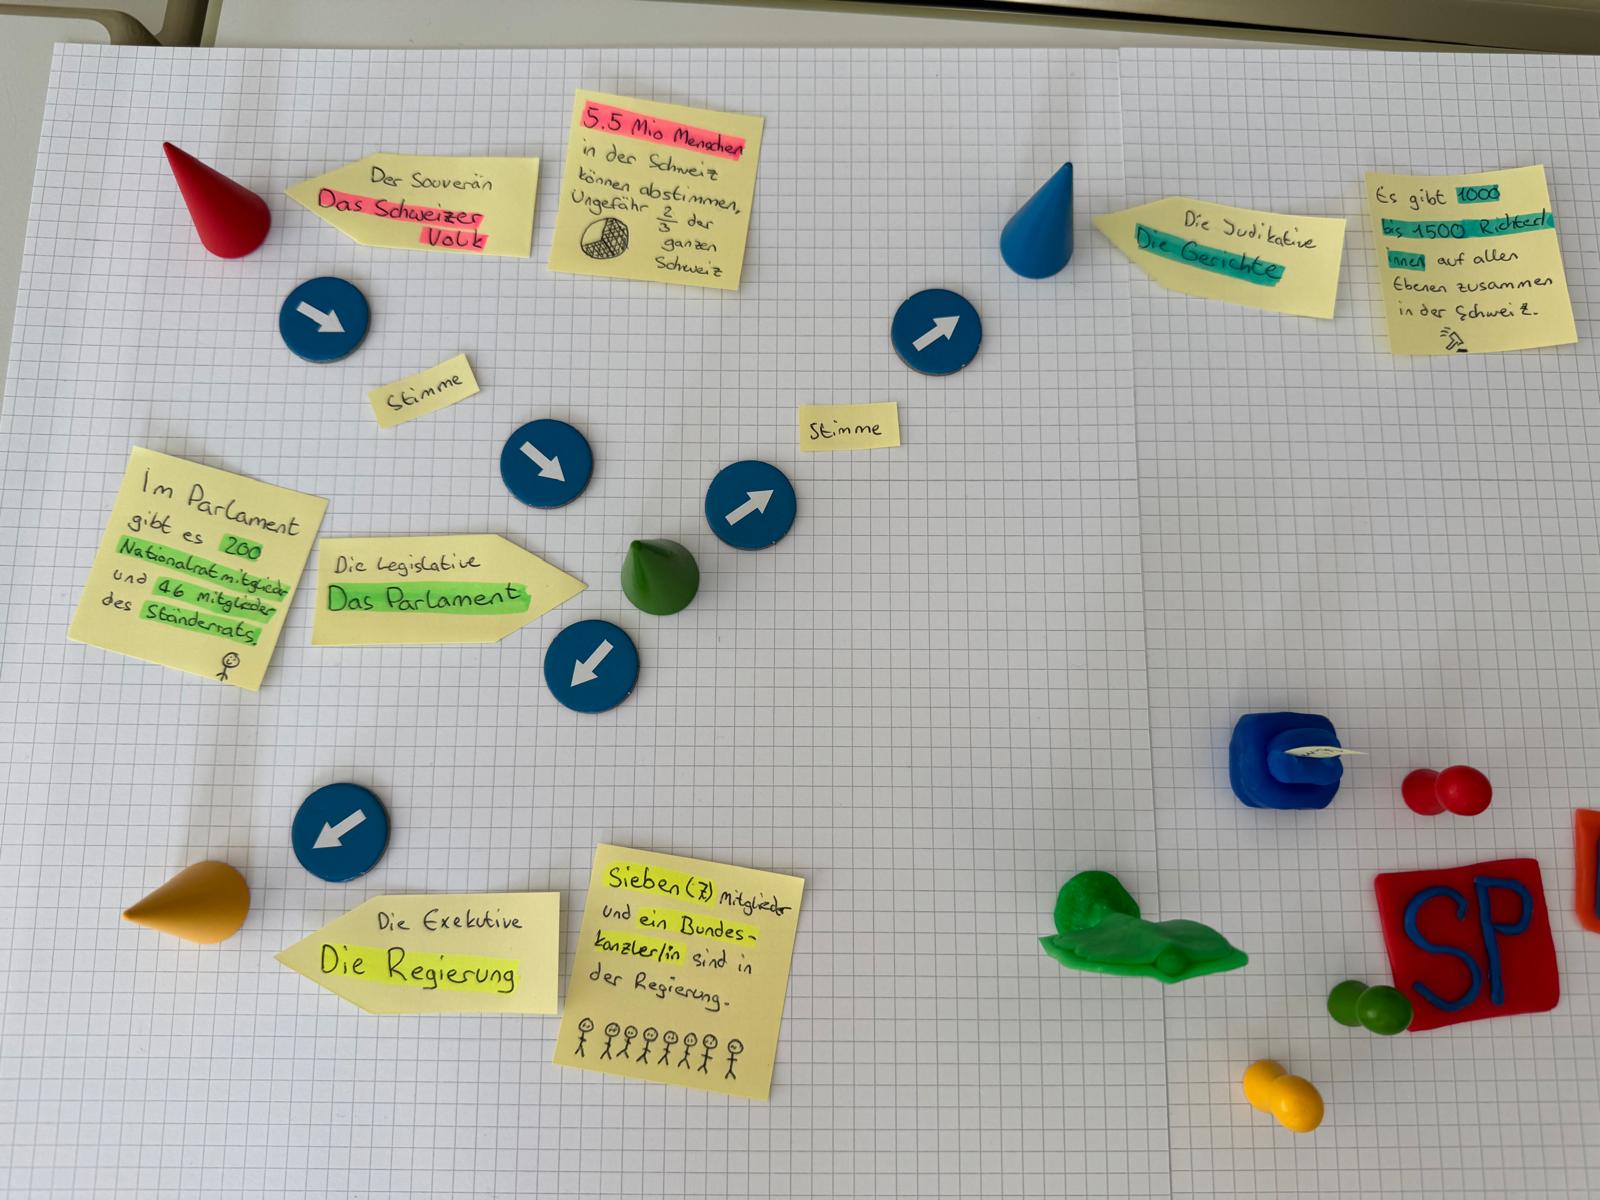 Der Souverän
Das Schweizer
Volk
5.5 Mio Menschen
in der Schweiz
können abstimmen,
Ungefähr 2/3 der
ganzen
Schweiz
Die Judikative
Die Gerichte
Es gibt 1000
bis 1500 Richter/
innen auf allen
Ebenen zusammen
in der Schweiz.
Stimme
Stimme
Im Parlament
gibt es 200
Nationalratmitglieder
und 46 Mitglieder
des Ständerrats.
Die Legislative
Das Parlament
Die Exekutive
Die Regierung
Sieben (7) Mitglieder
und ein Bundes-
kanzler/in sind in
der Regierung.
SP